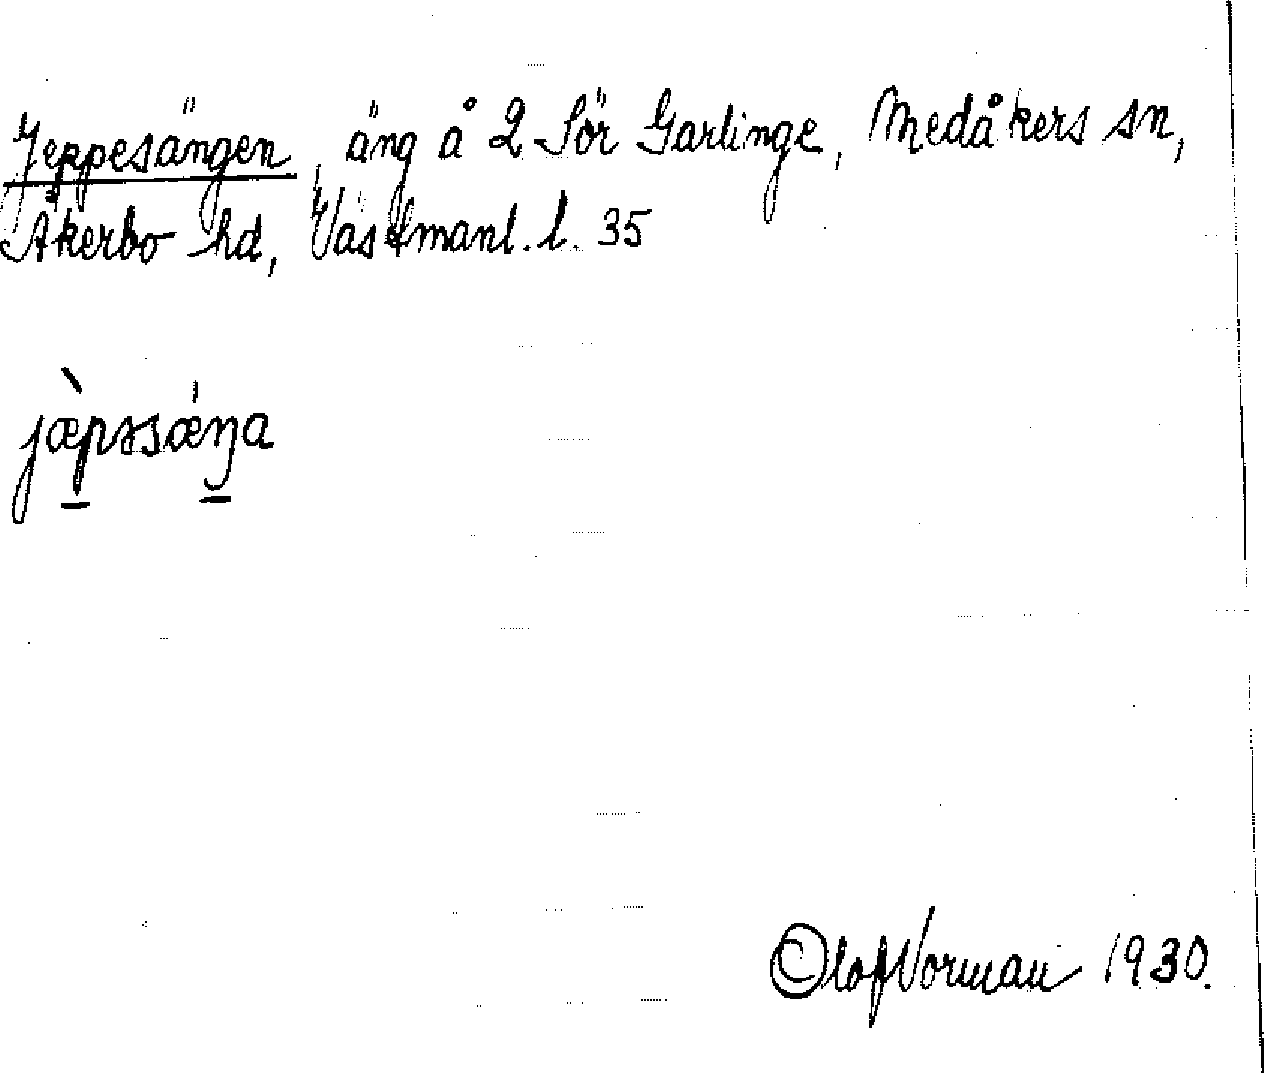 Jeppesängen, äng å 2 Sör Garlinge, Medåkers sn,
Åkerbo hd, Västmanl. l. 35
jæ̀pɜsǽŋa
Olof Norman 1930.